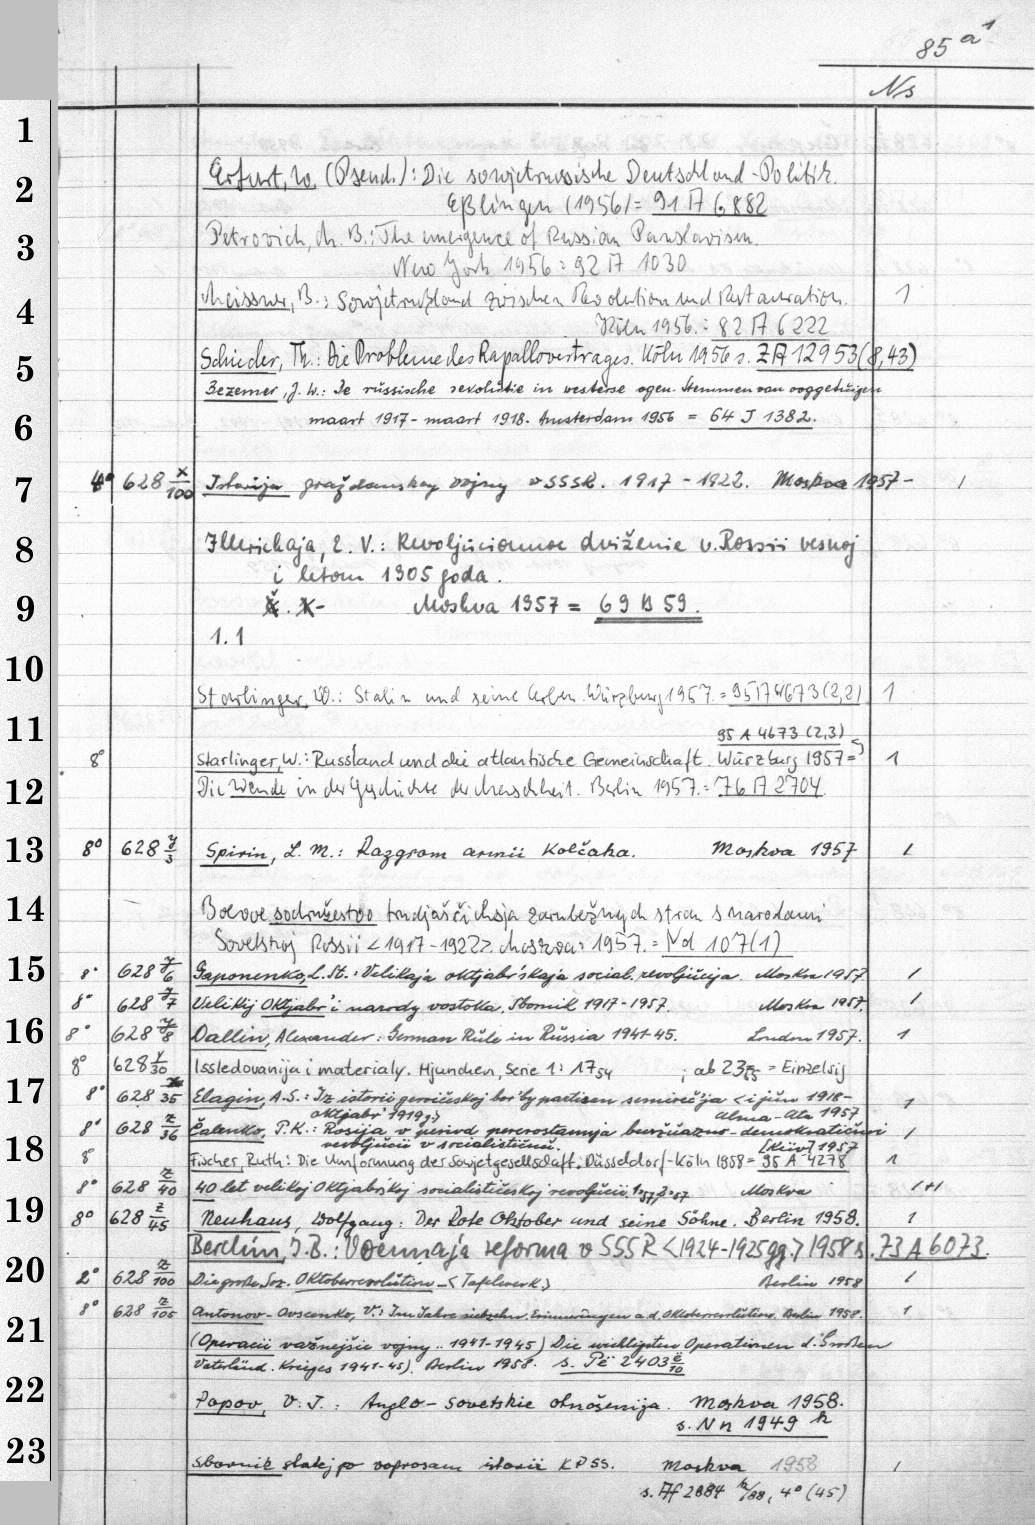 85 a 1
Ns
1
2 Erfurt, W. (Pseud.): Die sowjetrussische Deutschland-Politik.
Eßlingen (1956) = 91 A 6882
3 Petrovich, M. B.: The emergence of Russian Panslavism.
New York 1956 = 92 A 1030
4 Meissner, B.: Sowjetrußland zwischen Revolution und Restauration. 1
Köln 1956. = 82 A 6222
5 Schieder, Th.: Die Probleme des Rapallovertrages. Köln 1956 s. ZA 12953 (8,43)
Bezemer, J. W.: De rüssische revolütie in westerse ogen. Stemmen van ooggetüigen
6 maart 1917 - maart 1918. Amsterdam 1956 = 64 J 1382.
7 4° 628 x/100 Istorija graždanskoy vojny v SSSR. 1917 - 1922. Moskva 1957 - 1
8 Illerickaja, E. V.: Revoljucionnoe dviženie v Rossii vesnoj
i letom 1905 goda.
9 Moskva 1957 = 69 B 59.
1.1
10 Starlinger, W.: Stalin und seine Erben. Würzburg 1957. = 95 A 4673 (2,2) 1
11 95 A 4673 (2,3)
8° Starlinger, W.: Russland und die atlantische Gemeinschaft. Würzburg 1957 = 1
12 Die Wende in der Geschichte der Menschheit. Berlin 1957. = 76 A 2704.
13 8° 628 y/3 Spirin, L. M.: Razgrom armii Kolčaka. Moskva 1957 1
14 Boevoe sodružestvo trudjaščichsja zarubežnych stran s narodami
Sovetskoj Rossii <1917 - 1922>. Moskva 1957. = Nd 107(1)
15 8° 628 y/6 Gaponenko, L. St.: Velikaja oktjabr'skaja social. revoljücija. Moskva 1957 1
8° 628 y/7 Velikij Oktjabr' i narody vostoka. Sbornik 1917 - 1957. Moskva 1957. 1
16 8° 628 y/8 Dallin, Alexander: German Rüle in Rüssia 1941-45. London 1957. 1
8° 628 y/30 Issledovanija i materialy. Mjunchen, Serie 1: 17 54 ; ab 23 = Einzelsig
17 8° 628 /35 Elagin, A.S.: Iz istorii geroičeskoj bor'by partizan semireč'ja <ijün 1918 - 1
oktjabr' 1919g.> Alma-Ata 1957
8° 628 z/36 Čalenko, P.K.: Rossija v period pererostanija büržüazno-demokratičnoi 1
18 revoljücii v socialističnü. [Kiiv] 1957
8° Fischer, Ruth: Die Umformung der Sowjetgesellschaft. Düsseldorf-Köln 1958 = 95 A 4278 1
8° 628 z/40 40 let velikoj Oktjabrskoj socialističeskoj revoljücii. 1. 57, 2. 57 Moskva 1+1
19 8° 628 z/45 Neuhaus, Wolfgang: Der Rote Oktober und seine Söhne. Berlin 1958. 1
Berchin, I.B.: Voennaja reforma v SSSR <1924 - 1925 gg.> 1958 s. 73 A 6073.
20 2° 628 z/100 Die große Soz. Oktoberrevolütion - <Tafelwerk> Berlin 1958 1
8° 628 z/105 Antonov-Ovseenko, V.: Im Jahre siebzehn. Erinnerüngen a.d. Oktoberrevolütion. Berlin 1958. 1
21 (Operacii važnejšie vojny .. 1941-1945) Die wichtigsten Operationen d. Großen
Vaterländ. Krieges 1941-45). Berlin 1958. s. Pë 2403 ë/10
22 Popov, V. I.: Anglo-sovetskie otnošenija. Moskva 1958.
s. Nn 1949 k
23 Sbornik statej po voprosam istorii KPSS. Moskva 1958 1
s. Af 2884 k/88, 4° (45)